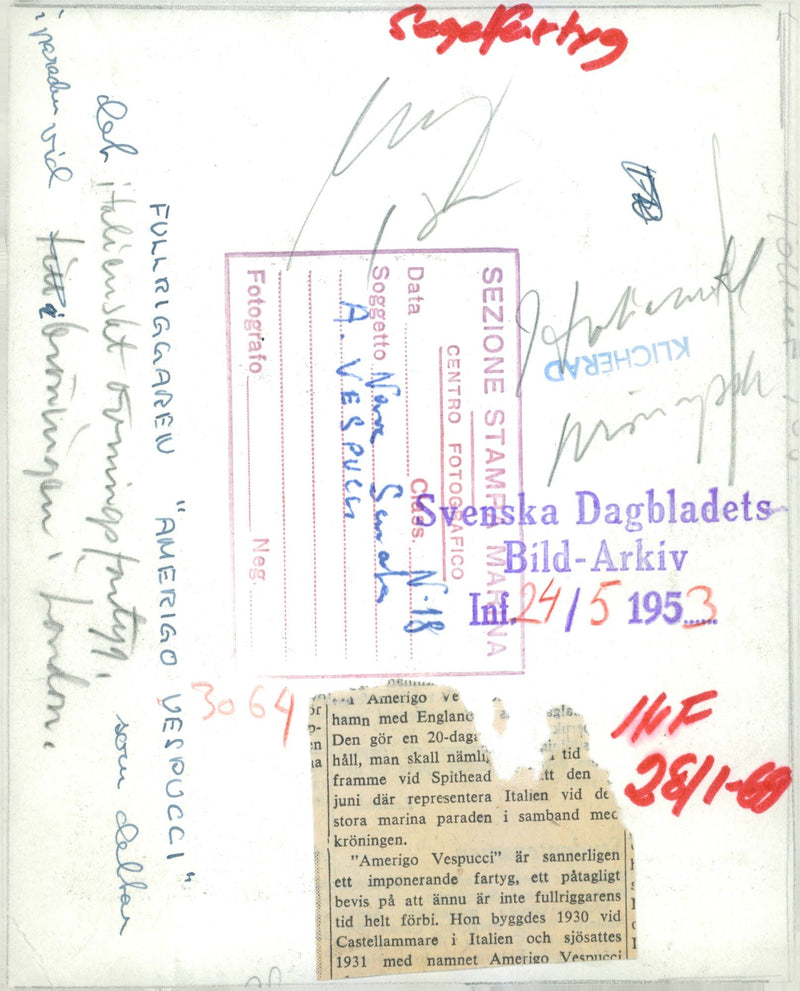 Segelfartyg
FULLRIGGAREN "AMERIGO VESPUCCI"
det italienskt övningsfartyg, som deltar
i paraden vid kröningen i London.
SEZIONE STAMPA MARINA
CENTRO FOTOGRAFICO
Data Class. N-18
Soggetto Nave Scuola
A. VESPUCCI
Fotografo Neg.
KLICHERAD
Svenska Dagbladets
Bild-Arkiv
Inf. 24/5 1953
3064
INF
28/1-69
Amerigo Ve
hamn med England
Den gör en 20-daga
håll, man skall nämli tid
framme vid Spithead tt den
juni där representera Italien vid de
stora marina paraden i samband med
kröningen.
"Amerigo Vespucci" är sannerligen
ett imponerande fartyg, ett påtagligt
bevis på att ännu är inte fullriggarens
tid helt förbi. Hon byggdes 1930 vid
Castellammare i Italien och sjösattes
1931 med namnet Amerigo Vespucci